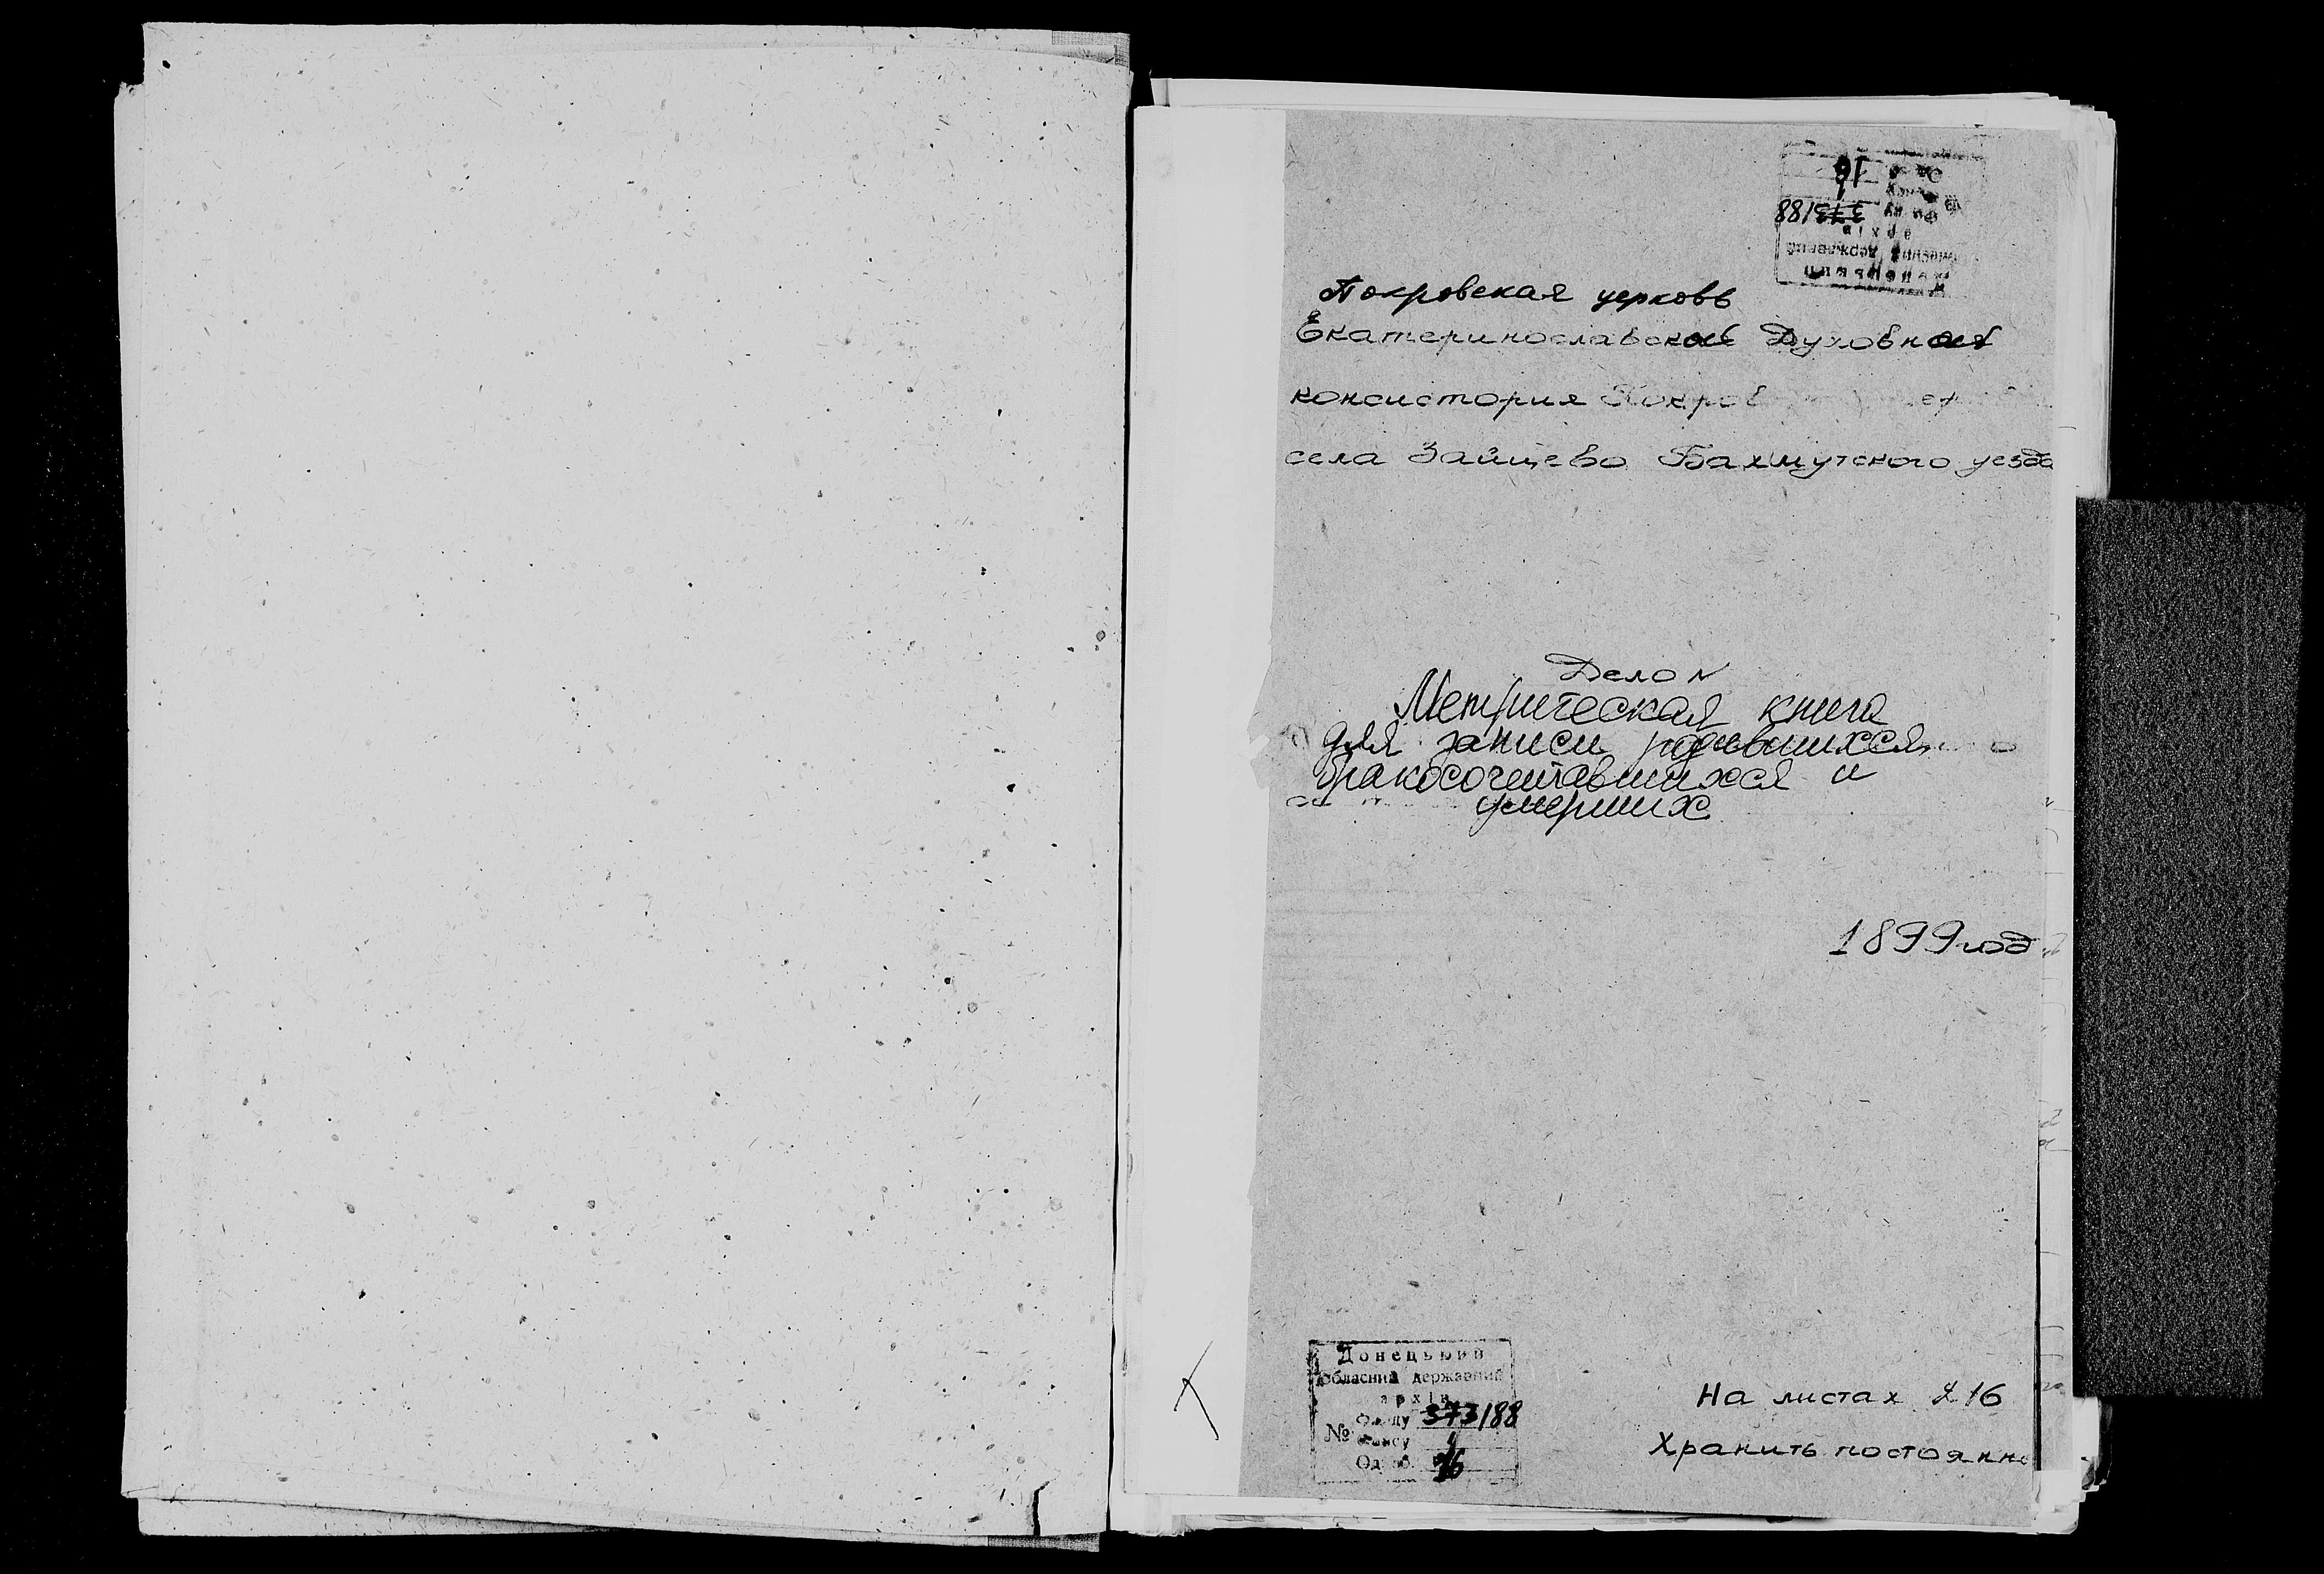 Покровская церковь
Екатеринославская Духовная
консистория Покров
села Зайцево Бахмутского уезда
Дело N
Метрическая книга
для записи родившихся,
бракосочетавшихся и
умерших
1899 год
Донецький
обласний державний
архів
№ Фонду 373/88
Опису 1
Од. зб. 16
На листах 216
Хранить постоянно